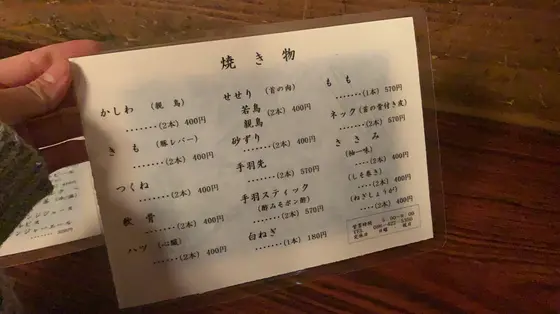 焼き物
かしわ (親鳥)
………(2本) 400円
きも (豚レバー)
………(2本) 400円
つくね
………(2本) 400円
軟骨
………(2本) 400円
ハツ (心臓)
………(2本) 400円
せせり (首の肉)
若鳥
親鳥 (2本) 400円
砂ずり
………(2本) 400円
手羽先
………(2本) 570円
手羽スティック
(酢みそポン酢)
………(2本) 570円
白ねぎ
………(1本) 180円
もも
………(1本) 570円
ネック (首の骨付き皮)
………(2本) 570円
ささみ
(柚一味)
……(2本) 400円
(しそ巻き)
……(2本) 400円
(ねぎしょうが)
……(2本) 400円
営業時間
定休日